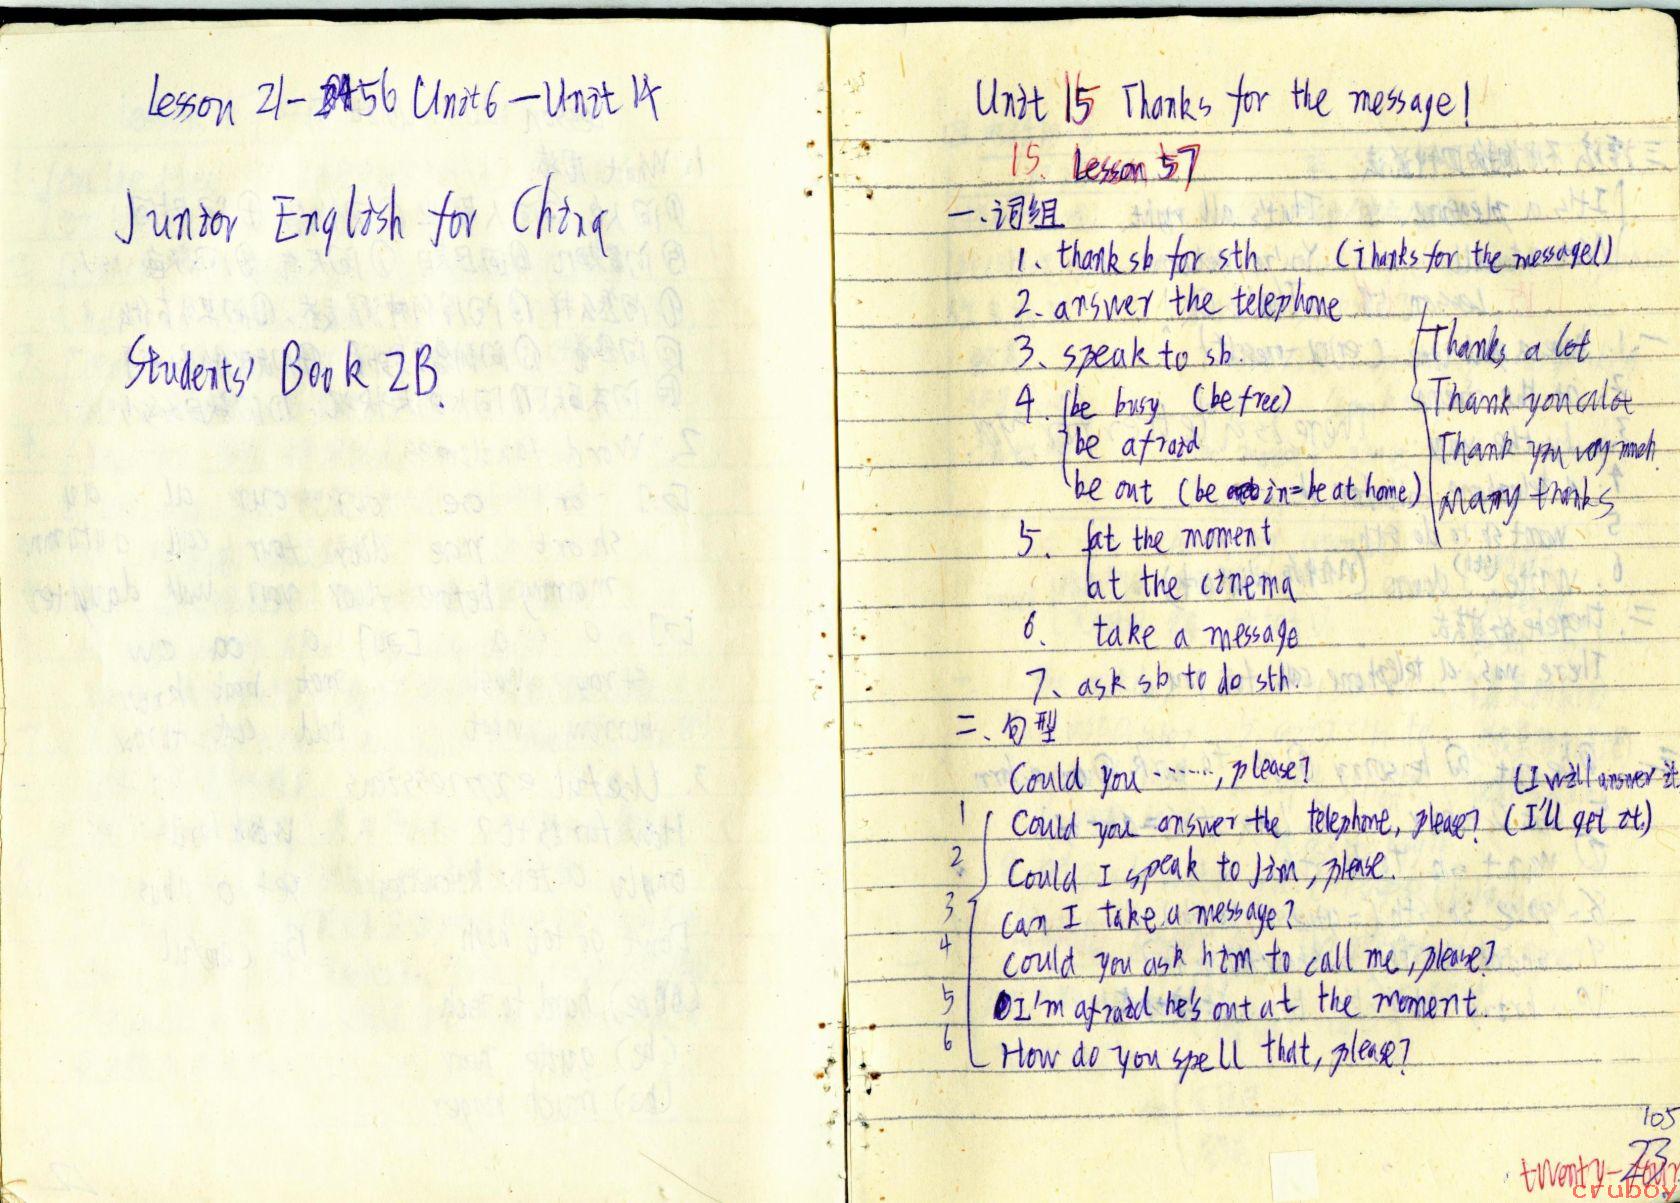 Lesson 21-56 Unit 6 — Unit 14
Junior English for China
Students' Book 2B.
Unit 15 Thanks for the message!
15. Lesson 57
一、词组
1、thank sb for sth. (Thanks for the message!)
2. answer the telephone
3、speak to sb.
4. be busy (be free)
be afraid
be out (be in = be at home)
Thanks a lot
Thank you a lot
Thank you very much.
Many thanks
5. at the moment
at the cinema
6. take a message
7、ask sb to do sth.
二、句型
Could you ……, please?
(I will answer it
1 Could you answer the telephone, please? (I'll get it.)
2 Could I speak to Jim, please.
3 Can I take a message?
4 Could you ask him to call me, please?
5 I'm afraid he's out at the moment.
6 How do you spell that, please?
105
23
twenty-four
cruboy